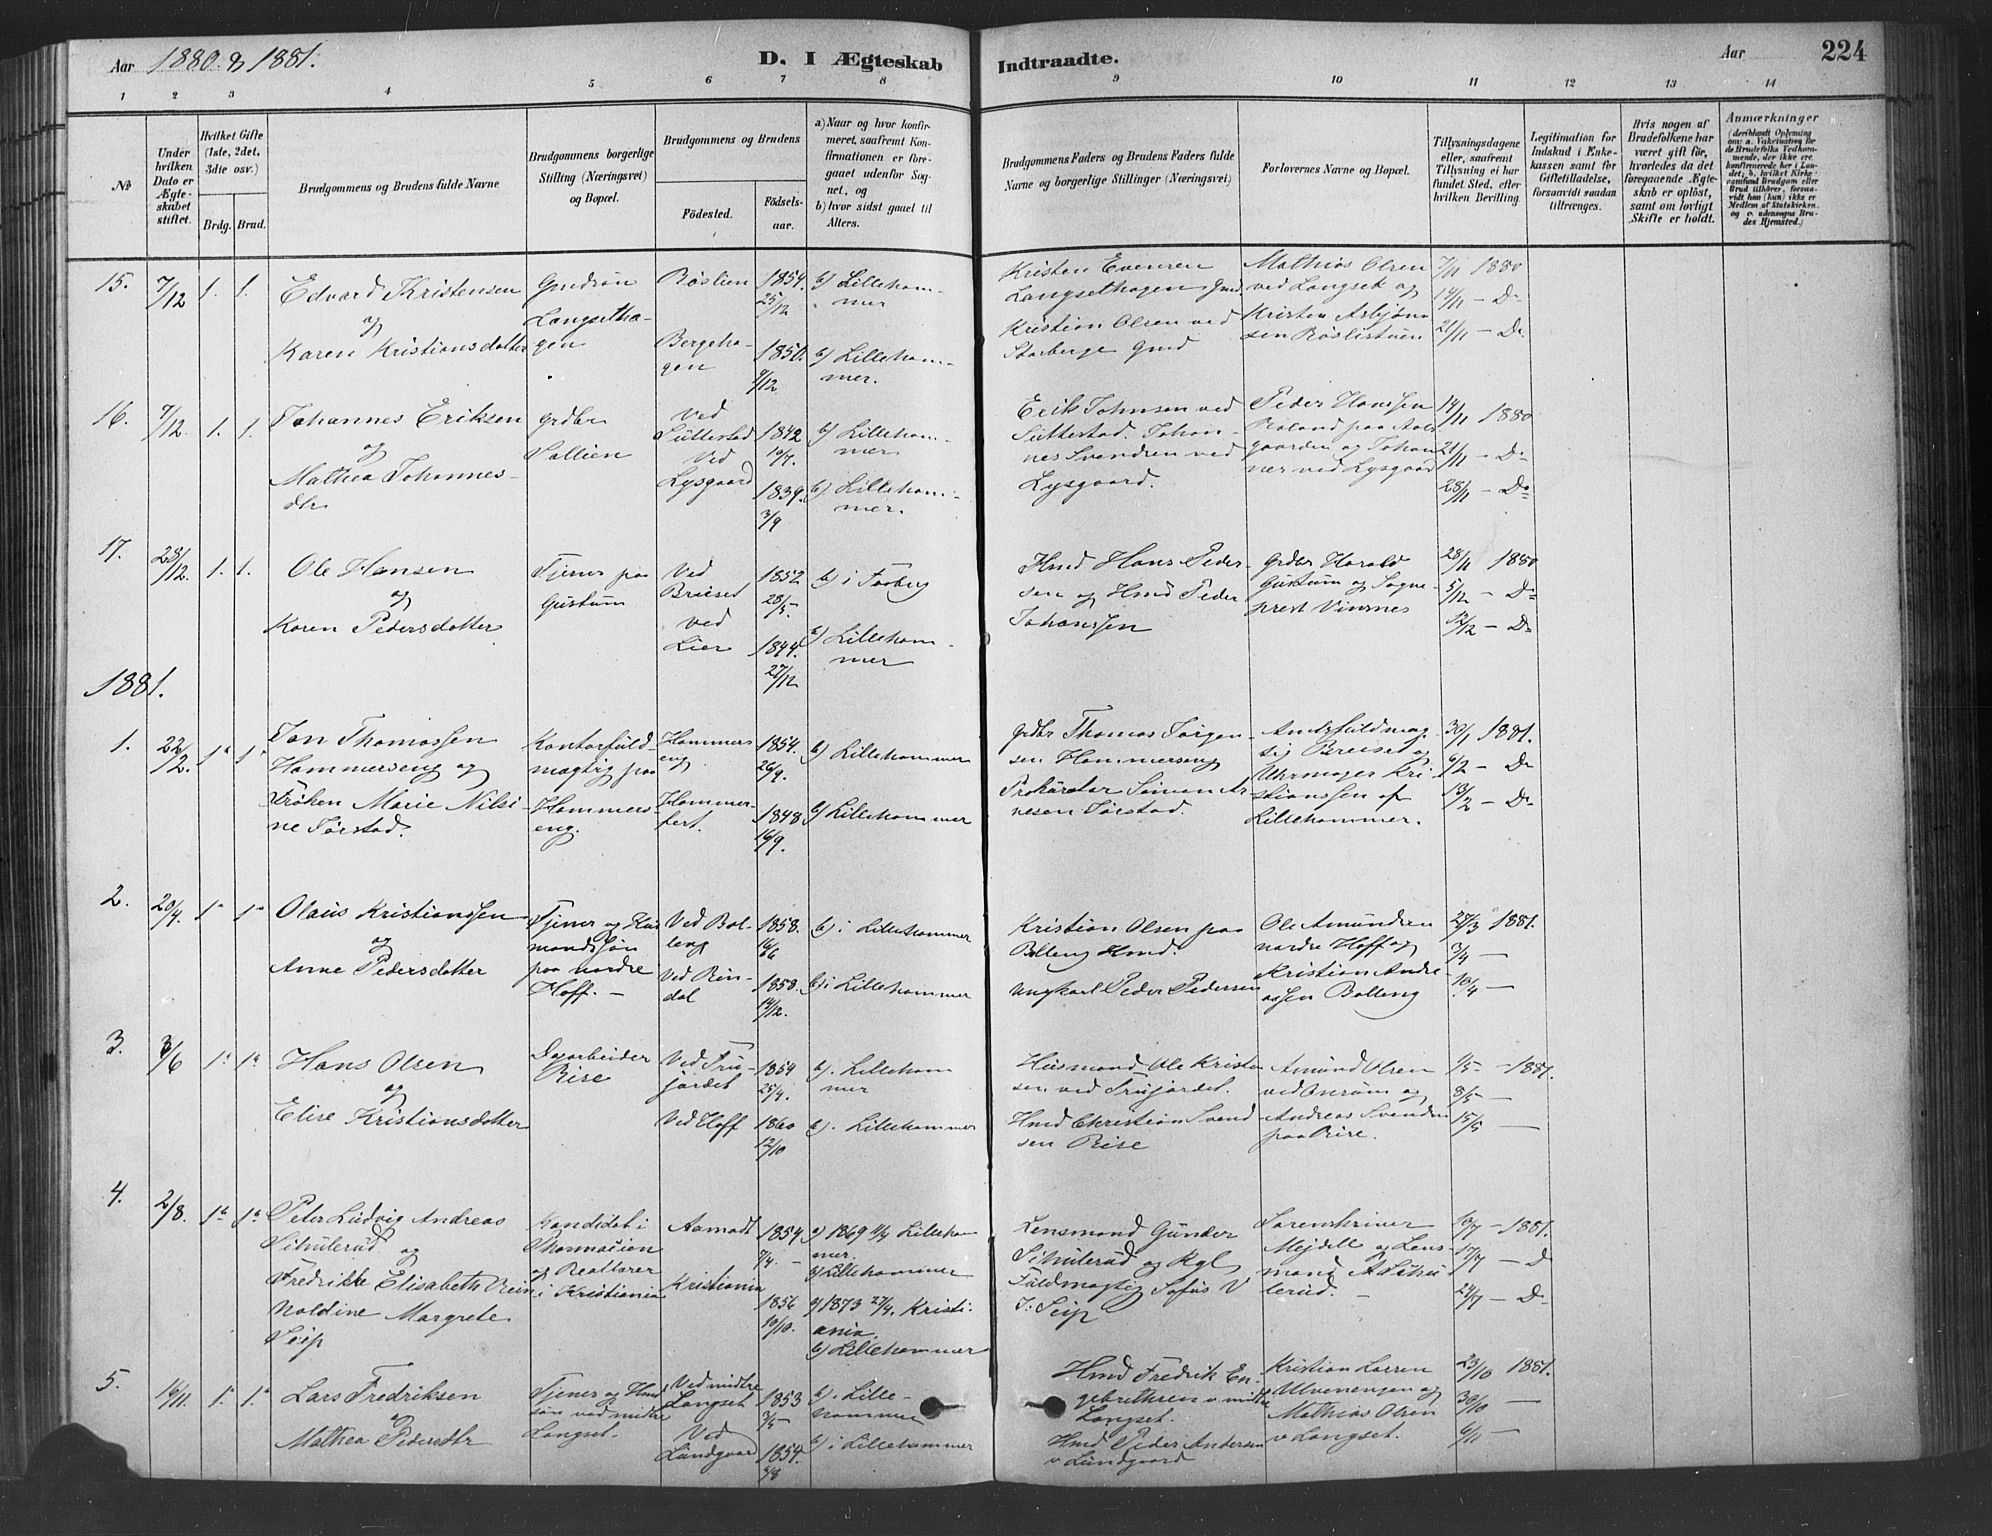 Aar 1880 & 1881.
D. I Ægteskab Indtraadte.
Aar 224
1 2 3 4 5 6 7 8 9 10 11 12 13 14
No
Under hvilken Dato er Ægteskabet stiftet.
Hvilket Gifte (1ste, 2det, 3die osv.)
Brdg. Brud.
Brudgommens og Brudens fulde Navne
Brudgommens borgerlige Stilling (Næringsvei) og Bopæl.
Brudgommens og Brudens
Födested. Födselsaar.
a) Naar og hvor konfirmeret, saafremt Konfirmationen er foregaaet udenfor Sognet, og
b) hvor sidst gaaet til Alters.
Brudgommens Faders og Brudens Faders fulde Navne og borgerlige Stillinger (Næringsvei)
Forlovernes Navne og Bopæl.
Tillysningsdagene eller, saafremt Tillysning ei har fundet Sted, efter hvilken Bevilling.
Legitimation for Indskud i Enkekassen samt for Giftetilladelse, forsaavidt saadan tiltrænges.
Hvis nogen af Brudefolkene har været gift för, hvorledes da det foregaaende Ægteskab er oplöst, samt om lovligt Skifte er holdt.
Anmærkninger
15. 7/12 1. 1.
Edvard Kristensen
og
Karen Kristiansdatter
Gmdsön
Langsetha-
gen
Röslien
Bergeha-
gen
1854.
25/12
1850.
9/12
b) Lilleham-
mer
b) Lilleham-
mer.
Kristen Evensen
Langsethagen Gmd.
Kristian Olsen ved
Storberge Gmd
Mathias Olsen
ved Langset og
Kristen Asbjörn
sen Röslistuen
7/11 1880
14/11 - Do
21/11 - Do
16. 7/12. 1. 1.
Johannes Eriksen
og
Mathea Johannes-
dtr
Grdbr
Sallien
Ved
Suttestad
Ved
Lysgaard
1842
10/7.
1839.
3/9
b) Lilleham-
mer
b) Lilleham-
mer.
Erik Johnsen ved
Suttestad. Johan-
nes Svendsen ved
Lysgaard.
Peder Hanssen
gaarden og Johan
nes ved Lysgaard
14/11 1880
21/11 - Do
28/11 - Do
17. 28/12. 1. 1.
Ole Hansen
og
Karen Pedersdatter
Tjener paa
Gustum
Ved
Brüset
ved
Lier
1852
28/5-
1844.
27/12
b) i Faaberg
b) Lilleham-
mer
Hmd Hans Peder-
sen og Hmd Peder
Johanssen
Grdbr Harald
Gustum og Sogne-
prest Vinsnes
28/11 1880
5/12 - Do
12/12 - Do
1881.
1. 22/2. 1a 1a
Jan Thomassen
Hammerseng og
Fröken Marie Nilsi-
ne Sörstad.
Kontorfuld-
mægtig paa
Hammers-
eng.
Hammers
eng.
Hammer-
fest.
1854.
26/9.
1848.
16/9.
b) Lillehammer
b) Lillehammer
Grdbr Thomas Jörgen-
sen Hammerseng
Prokurator Simon Ar
nesen Sörstad.
Amtsfuldmæg-
tig Breiset og
Uhrmager Kri-
stianssen af
Lillehammer.
30/1 1881.
6/2 - Do
13/2 - Do
2. 20/4. 1a 1a
Olaus Kristianssen
og
Anne Pedersdatter
Tjener og Hus
mandssön
paa nordre
Hoff. -
Ved Bal-
leng
Ved Rin-
dal
1858.
16/6
1858.
14/12.
b) i Lillehammer
b) i Lillehammer
Kristian Olsen paa
Balleng Hmd.
Ungkarl Peder Pedersen
Ole Amundsen
nordre Hoff og
Kristian Andre-
assen Balleng
27/3 1881.
3/4 -
10/4 -
3. 3/6 1a 1a
Hans Olsen
og
Elise Kristiansdatter
Dagarbeider
Rise
Ved Fru-
jordet
Ved Hoff
1854
25/4.
1860
12/10
b). Lilleham
mer
b). Lillehammer
Husmand Ole Kristen
sen ved Frujordet.
Hmd Christian Svend
sen Rise
Amund Olsen
ved Onsum og
Andreas Svendsen
paa Rise.
1/5 - 1881.
8/5 -
15/5 -
4. 2/8. 1a 1a
Peter Ludvig Andreas
Simulerud og
Fredrikke Elisabeth Rein
holdine Margrete
Seip
Kandidat i
Pharmacien
og Realtorer
i Kristiania
Aamodt
Kristiania
1854
7/4. -
1856
10/10.
a) 1869 11/4 Lilleha
mer.
b) Lillehammer
a) 1873 27/4. Kristi-
ania.
b) Lillehammer
Lensmand Gunder
Simulerud og Kgl
Fuldmægtig Sofus V
J. Seip
Sorenskriver
Mejdell og Lens-
mand A Simu
lerud. -
10/7 - 1881.
17/7 - D
24/7 - Do
5. 16/11. 1. 1a
Lars Fredriksen
og
Mathea Pedersdtr
Tjener og Hmd
sön ved midtre
Langset.
Ved midtre
Langset
Ved
Lundgaard
1853
3/5 -
1854.
b). Lille-
hammer
b) i Lillehammer
Hmd Fredrik En-
gebrethsen v midtre
Langset.
Hmd Peder Andersen
v Lundgaard
Kristian Larsen
Ulvenengen og
Mathias Olsen
v Langset.
23/10 1881.
30/10 -
6/11 -